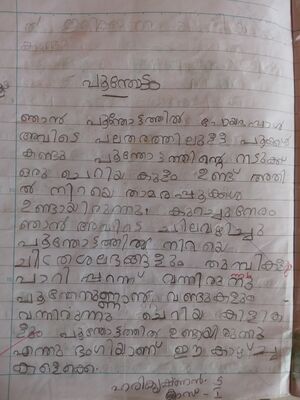 പൂന്തോട്ടം
ഞാൻ പൂന്തോട്ടത്തിൽ പോയപ്പോൾ
അവിടെ പലതരത്തിലുള്ള പൂക്കൾ
കണ്ടു പൂന്തോട്ടത്തിന്റെ നടുക്ക്
ഒരു ചെറിയ കുളം ഉണ്ട് അതി
ൽ നിറയെ താമരപ്പൂക്കൾ
ഉണ്ടായിരുന്നു. കുറച്ചുനേരം
ഞാൻ അവിടെ ചിലവഴിച്ചു
പൂന്തോട്ടത്തിൽ നിറയെ
ചിത്രശലഭങ്ങളും തുമ്പികളും
പാറി പറന്ന് വന്നിരുന്നു
പൂന്തേനുണ്ണാൻ വണ്ടുകളും
വന്നിരുന്നു ചെറിയ കിളിക
ളും പൂന്തോട്ടത്തിൽ ഉണ്ടായിരുന്നു
എന്തു ഭംഗിയാണ് ഈ കാഴ്ച്ച
കളൊക്കെ.
ഹരികൃഷ്ണൻ.
ക്ലാസ് -